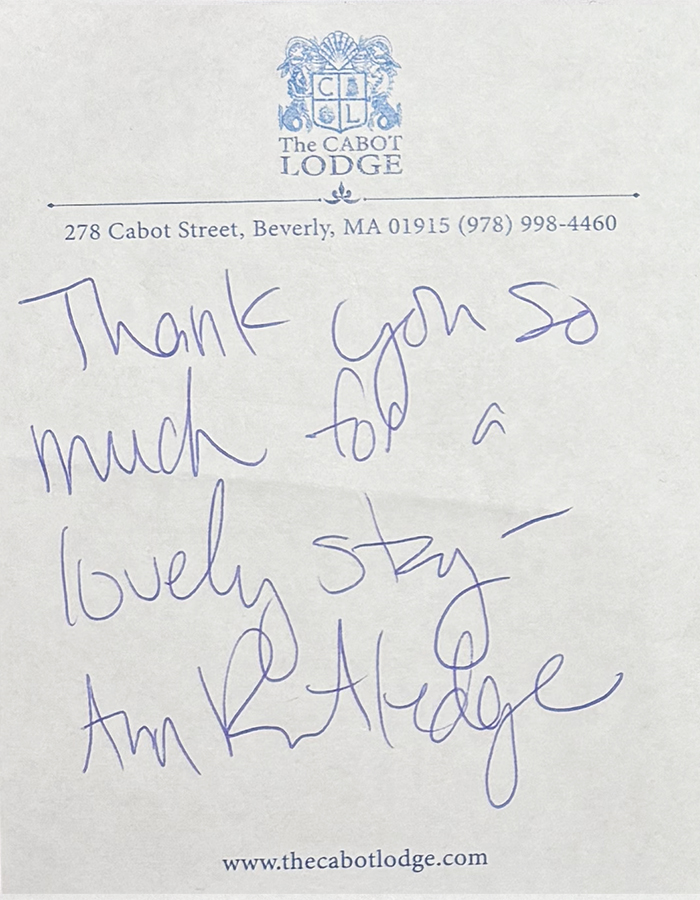 C
L
The CABOT
LODGE
278 Cabot Street, Beverly, MA 01915 (978) 998-4460
Thank you so
much for a
lovely stay -
Ann Rutledge
www.thecabotlodge.com